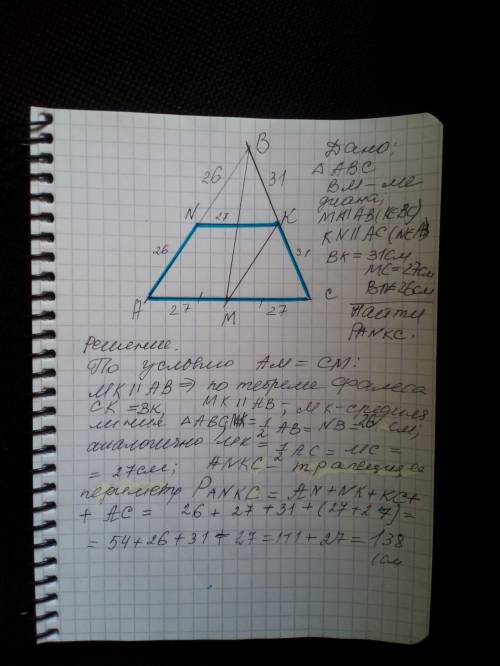 B
26
31
N
27
K
26
31
A
27
M
27
C
Дано:
△ ABC
BM – ме
диана;
MK∥AB (K∈BC)
KN∥AC (N∈AB)
BK = 31см
MC = 27см
BN = 26см
Найти
PANKC.
Решение.
По условию AM = CM:
MK∥AB ⇒ по теореме Фалеса
CK = BK, MK∥AB; MK – средняя
линия △ABC MK = 1/2 AB = NB = 26 см;
аналогично NK = 1/2 AC = MC =
= 27см; ANKC – трапеция
периметр PANKC = AN + NK + KC +
+ AC = 26 + 27 + 31 + (27 + 27) =
= 54 + 26 + 31 + 27 = 111 + 27 = 138
(см